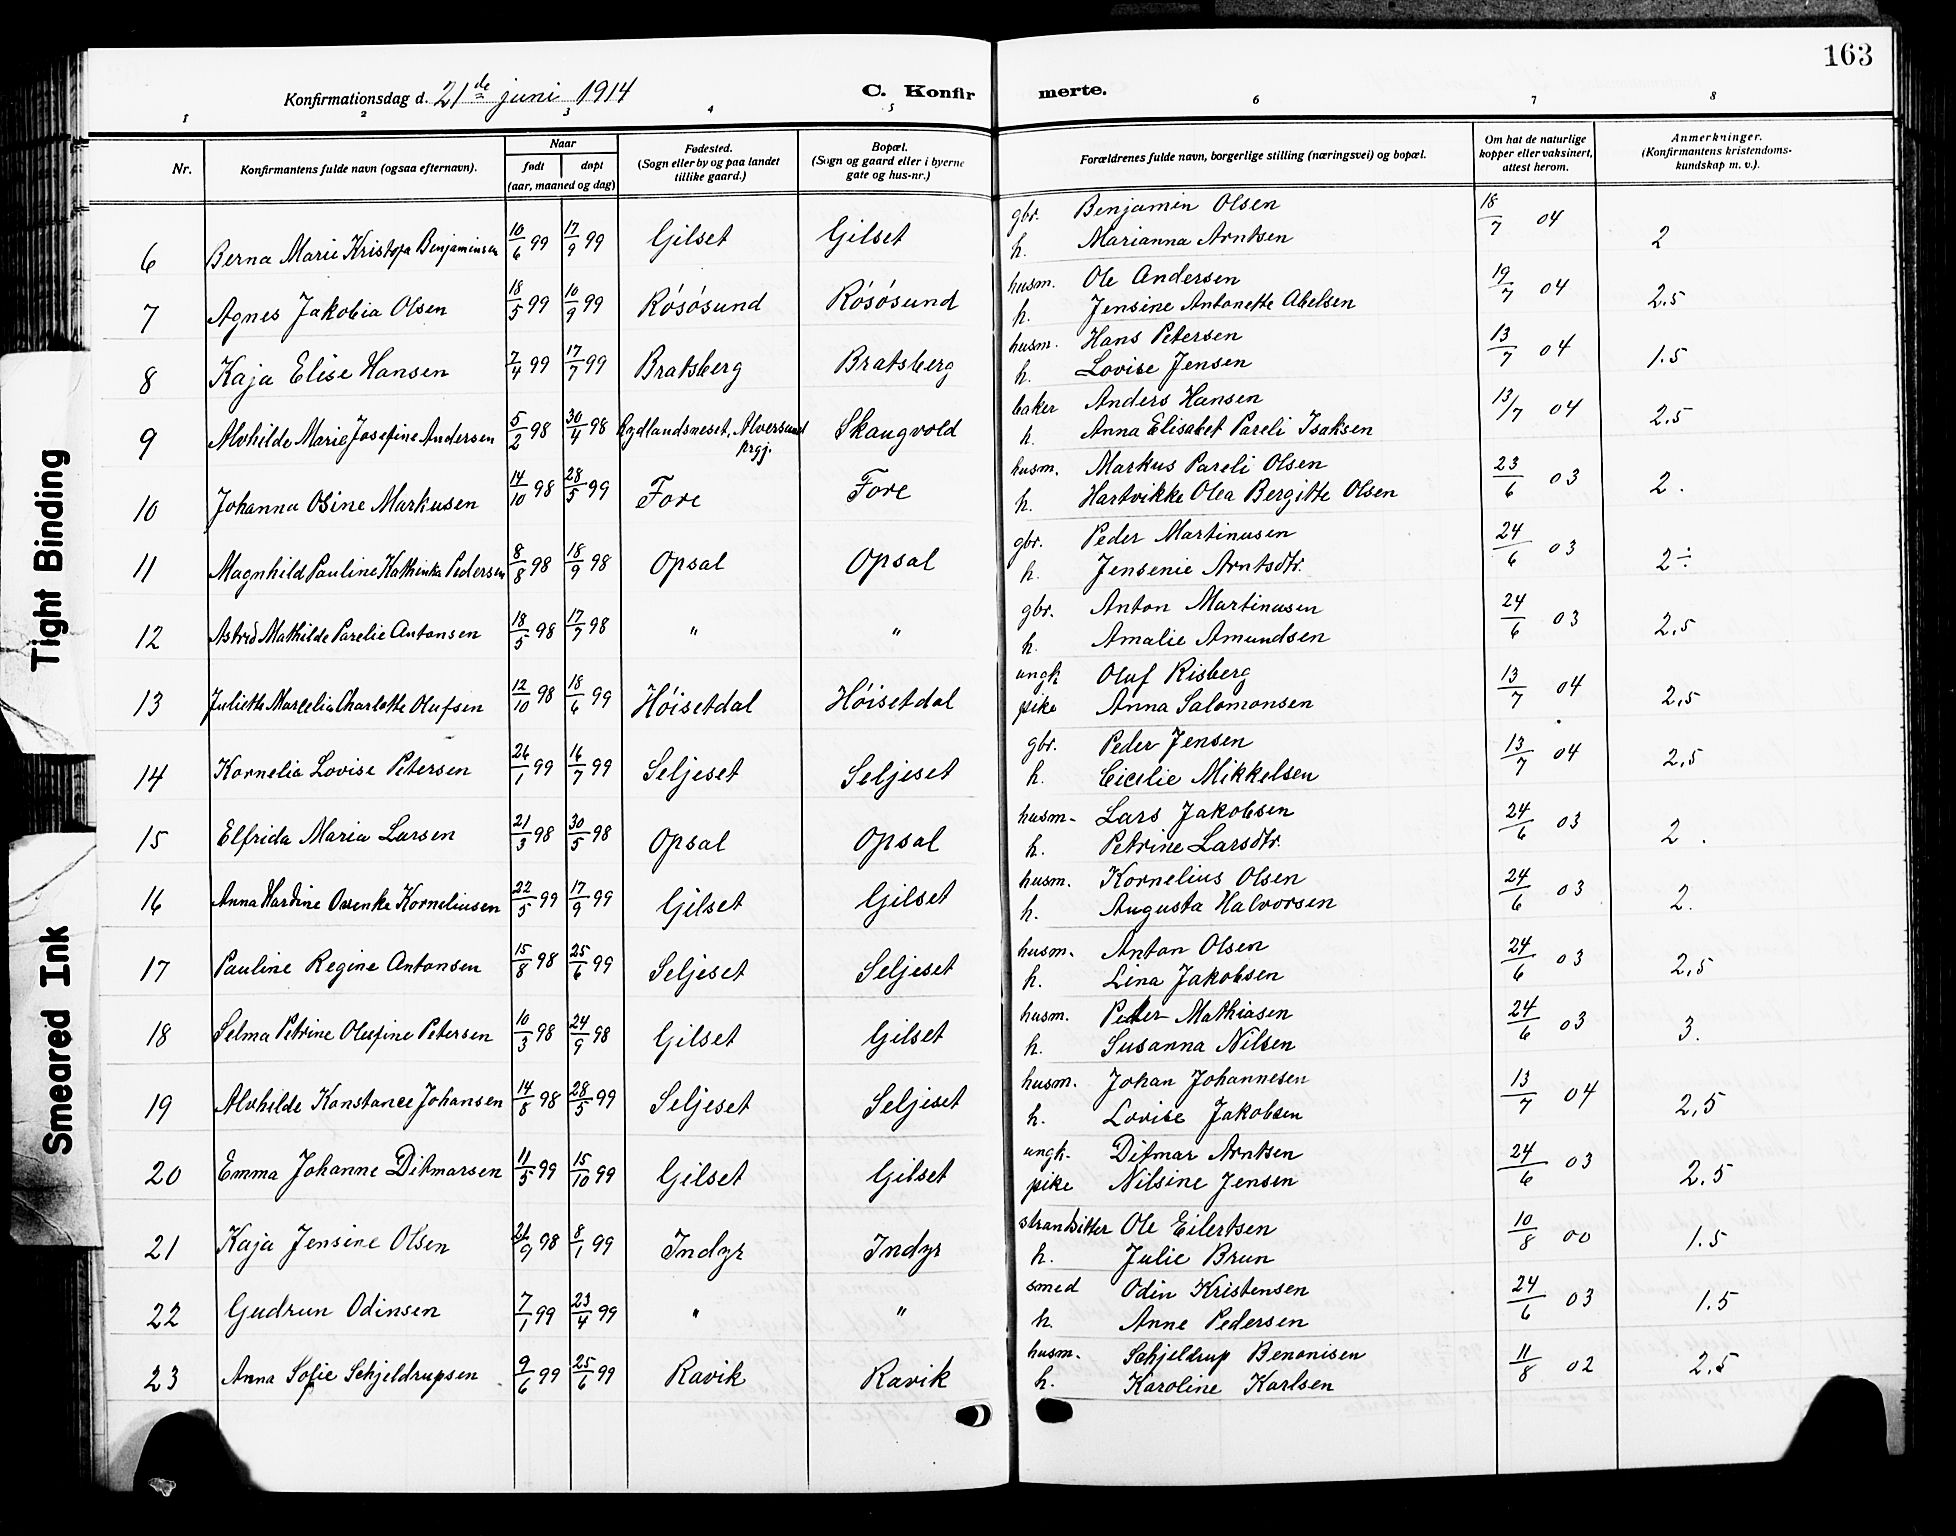 163
Konfirmationsdag d. 21de juni 1914
C. Konfir merte.
1 2 3 4 5 6 7 8
Nr. Konfirmantens fulde navn (ogsaa efternavn). Naar født døpt (aar, maaned og dag) Fødested. (Sogn eller by og paa landet tillike gaard.) Bopæl. (Sogn og gaard eller i byerne gate og hus-nr.) Forældrenes fulde navn, borgerlige stilling (næringsvei) og bopæl. Om hat de naturlige kopper eller vaksinert, attest herom. Anmerkninger. (Konfirmantens kristendoms-kundskap m. v.).
6 Berna Marie Kristofa Benjaminsen 10/6 99 17/9 99 Gilset Gilset gbr. Benjamin Olsen 18/7 04 2
h. Marianna Arntsen
7 Agnes Jakobia Olsen 18/5 99 10/9 99 Røsøsund Røsøsund husm. Ole Andersen 19/7 04 2.5
h. Jensine Antonette Abelsen
8 Kaja Elise Hansen 7/4 99 17/7 99 Bratsberg Bratsberg husm. Hans Petersen 13/7 04 1.5
h. Lovise Jensen
9 Alvhilde Marie Josefine Andersen 5/2 98 30/4 98 Rydlandsneset, Alversund prgj. Skaugvold baker Anders Hansen 13/7 04 2.5
h. Anna Elisabet Pareli Isaksen
10 Johanna Osine Markusen 14/10 98 28/5 99 Fore Fore husm. Markus Pareli Olsen 23/6 03 2.
h. Hartvikke Olea Bergitte Olsen
11 Magnhild Pauline Kathinka Pedersen 8/8 98 18/9 98 Opsal Opsal gbr. Peder Martinusen 24/6 03 2÷
h. Jensenie Arntsdtr.
12 Astrid Mathilde Parelie Antonsen 18/5 98 17/7 98 " " gbr. Anton Martinusen 24/6 03 2,5
h. Amalie Amundsen
13 Juliette Marcelia Charlotte Olufsen 12/10 98 18/6 99 Høisetdal Høisetdal ungk. Oluf Risberg 13/7 04 2,5
pike Anna Salomonsen
14 Kornelia Lovise Petersen 26/1 99 16/7 99 Seljeset Seljeset gbr. Peder Jensen 13/7 04 2,5
h. Cicilie Mikkelsen
15 Elfrida Maria Larsen 21/3 98 30/5 98 Opsal Opsal husm. Lars Jakobsen 24/6 03 2.
h. Petrine Larsdtr.
16 Anna Hardine Korneliusen 22/5 99 17/9 99 Gilset Gilset husm. Kornelius Olsen 24/6 03 2.
h. Augusta Halvorsen
17 Pauline Regine Antonsen 15/8 98 25/6 99 Seljeset Seljeset husm. Anton Olsen 24/6 03 2,5
h. Lina Jakobsen
18 Selma Petrine Olufine Petersen 10/3 98 24/9 98 Gilset Gilset husm. Peder Mathiasen 24/6 03 3.
h. Susanna Nilsen
19 Alvhilde Konstance Johansen 14/8 98 28/5 99 Seljeset Seljeset husm. Johan Johannesen 13/7 04 2,5
h. Lovise Jakobsen
20 Emma Johanne Ditmarsen 11/5 99 15/10 99 Gilset Gilset ungk. Ditmar Arntsen 24/6 03 2.5
pike Nilsine Jensen
21 Kaja Jensine Olsen 21/9 98 8/1 99 Indyr Indyr strandsitter Ole Eilertsen 10/8 00 1.5
h. Julie Brun
22 Gudrun Odinsen 7/1 99 23/4 99 " " smed Odin Kristensen 24/6 03 1.5
h. Anne Pedersen
23 Anna Sofie Schjeldrupsen 9/6 99 25/6 99 Ravik Ravik husm. Schjeldrup Benonisen 11/8 02 2.5
h. Karoline Karlsen
Tight Binding
Smeared Ink